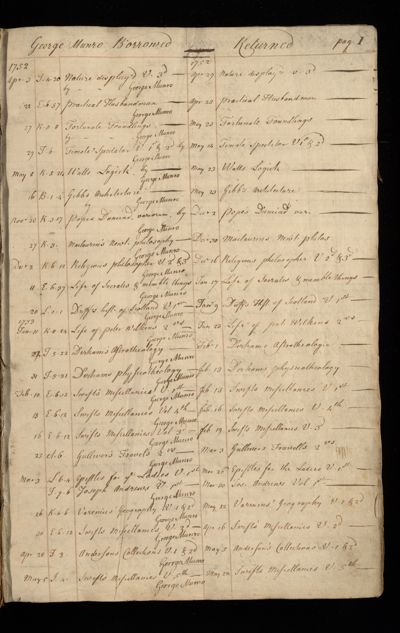 George Munro Borrowed Returned pag 1
1752 1752
Apr 3 Nature display'd V. 3d Apr 27 Nature display'd V 3d
by George Munro
21 E.6.57 practical Husbandman Apr 20 practical Husbandman
George Munro
27 Fortunate Foundlings May 23 Fortunate Foundlings
by George Munro
29 Female Spectator V 1st & 2d by May 14 Female Spectator V 1st & 2d
George Munro
May 8 Watts Logick by May 23 Watts Logick
George Munro
16 B.1.4 Gibbs Architecture May 23 Gibbs Architecture
George Munro
Nov 20 Popes Dunciad by Decr 2 Popes Dunciad
George Munro
27 Maclaurins Newt philosophy Dec 20 Maclaurins Newt philos
George Munro
Decr 2 Religious philosopher V 2d & 3d Dec 16 Religious philosopher V 2d & 3d
George Munro
11 Life of Socrates & nimble things Jan 17 Life of Socrates & nimble things
George Munro
20 Duffs hist. of Scotland V 1st Jan 9 Duffs Hist of Scotland V 1st
1753 George Munro
Jan 11 Life of peter Wilkins 2 vos Jan 22 Life of pet Wilkins 2 vos
George Munro
Derhams Astrotheology Feb 1 Derhams Astrotheologie
George Munro
31 Derhams physicotheology Feb 13 Derhams physicotheology
George Munro
Feb 10 E.6.12 Swifts Miscellanies V 1st Feb 13 Swifts Miscellanies V 1st
George Munro
13 E.6.12 Swifts Miscellanies Vol 4th Feb 16 Swifts Miscellanies V 4th
George Munro
16 E.6.12 Swifts Miscellanies Vol 3d Feb 19 Swifts Miscellanies V 3d
George Munro
23 Gullivers Travels 2 vos Mar 3 Gullivers Travells 2 vos
George Munro
Mar 3 Epistles for ye Ladies V 1st Mar 20 Epistles for the Ladies V 1st
Joseph Andrews V 1st Mar 20 Jos. Andrews Vol 1st
George Munro
26 Varenius Geography V 1 & 2d May 12 Varenius' Geography V 1 & 2d
George Munro
30 E.6.12 Swifts Miscellanies V 2d Apr 16 Swifts Miscellanies V 2d
George Munro
Apr 20 Andersons Collections V 1 & 2d May 5 Anderson's Collections V 1 & 2d
George Munro
May 5 Swifts Miscellanies V 5th May 24 Swifts Miscellanies V 5th
George Munro